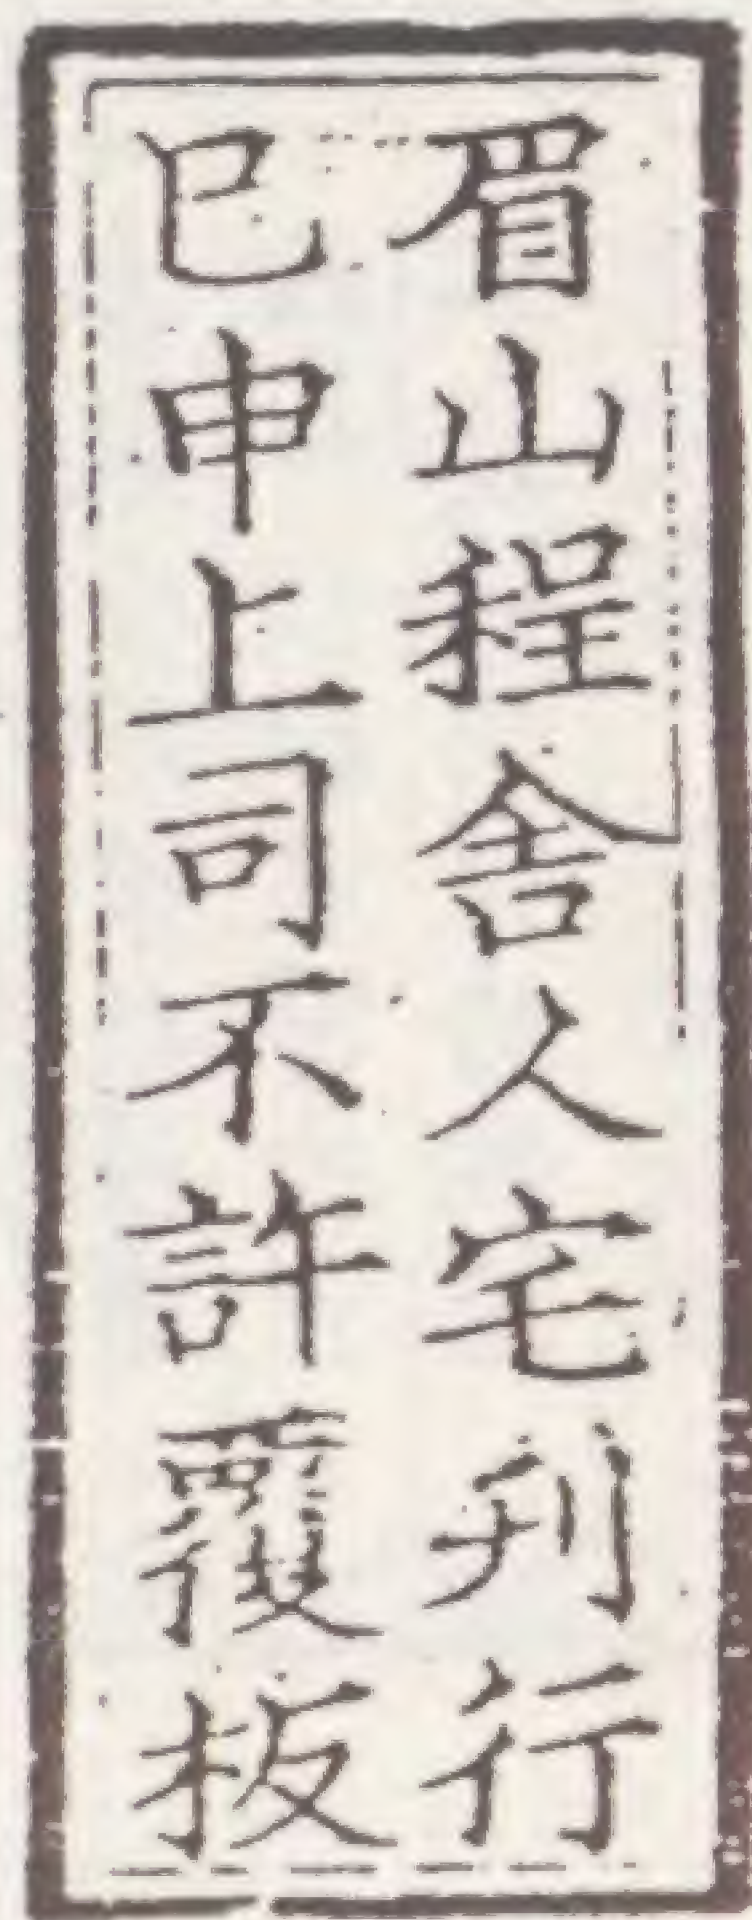 眉山程舍人宅刊行
已申上司不許覆板